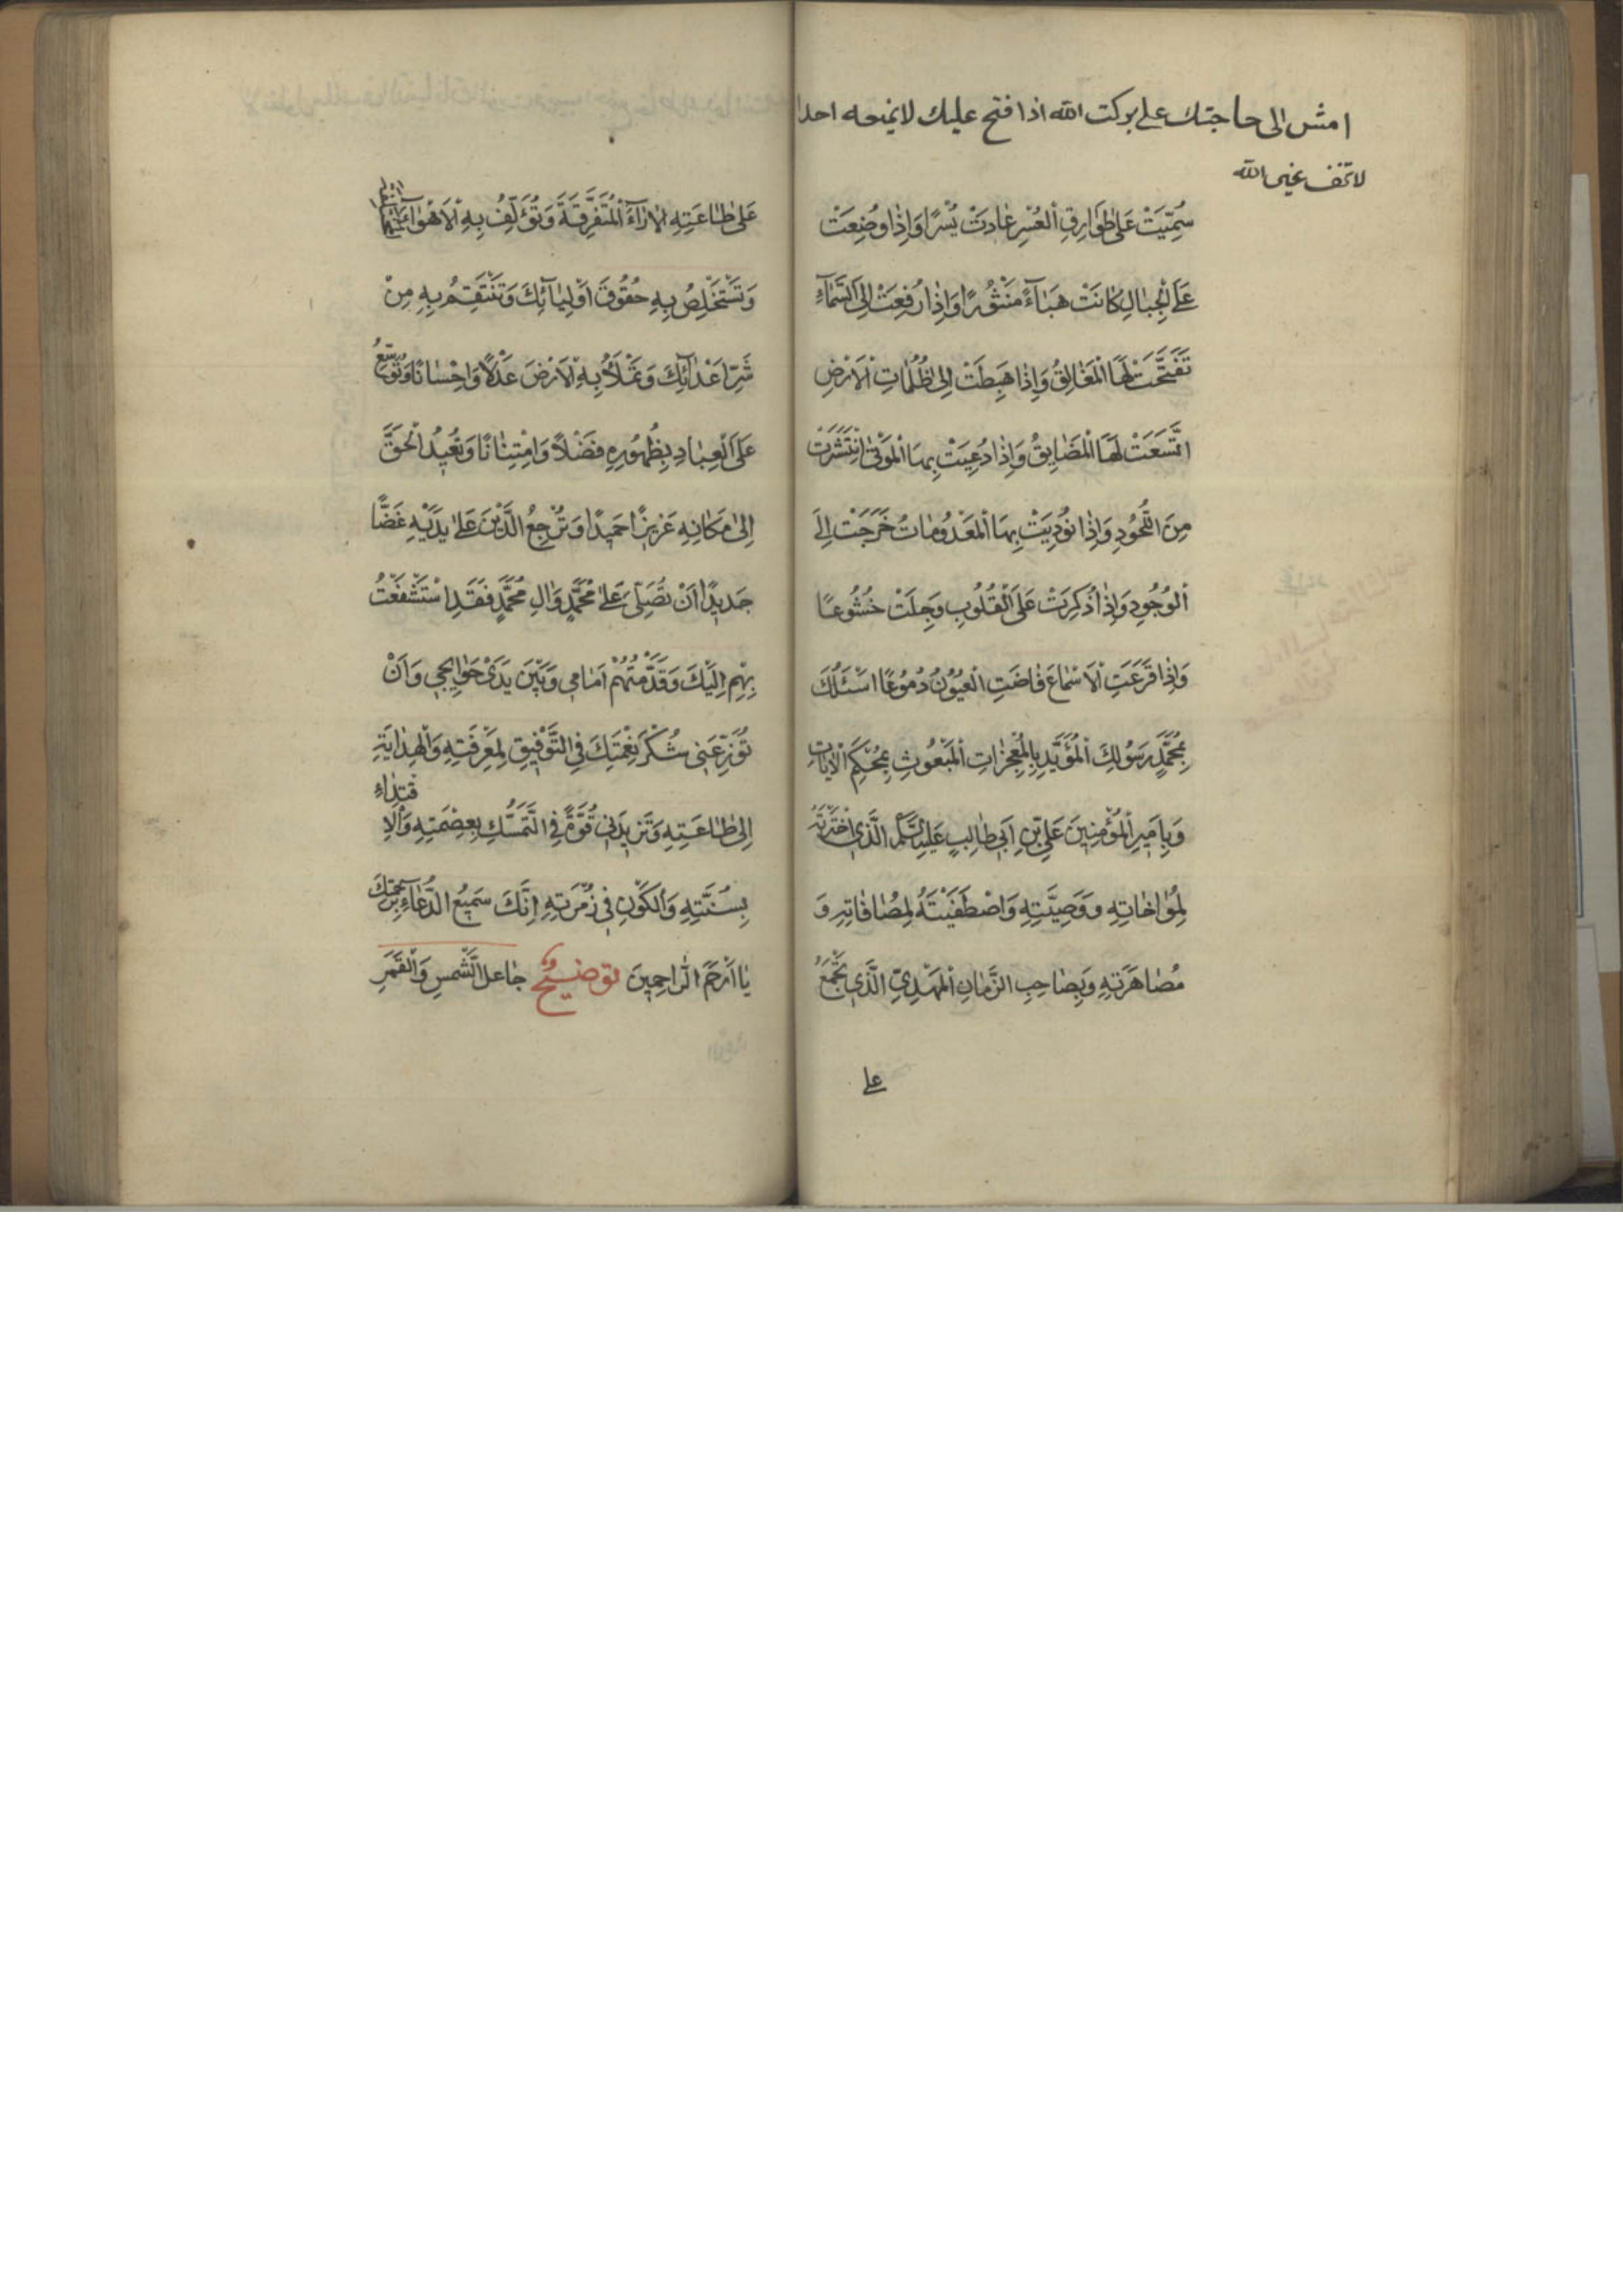 امش الى حاجتك على بركت الله اذا فتح عليك لا يمنعه احدا
لا تخف غير الله
سُمِّيَتْ عَلىٰ طَوَارِقِ الْعُسْرِ عٰادَتْ يُسْرًا وَاِذٰا وُضِعَتْ
عَلَى الْجِبٰالِ كٰانَتْ هَبٰاءً مَنْثُورًا وَاِذٰا رُفِعَتْ اِلَى السَّمٰاءِ
تَفَتَّحَتْ لَهَا الْمَغٰالِقُ وَاِذٰا هَبِطَتْ اِلىٰ ظُلُمٰاتِ الْاَرْضِ
اتَّسَعَتْ لَهَا الْمَضٰايِقُ وَاِذٰا دُعِيَتْ بِهَا الْمَوْتىٰ انْتَشَرَتْ
مِنَ اللُّحُودِ وَاِذٰا نُودِيَتْ بِهَا الْمَعْدُومٰاتُ خَرَجَتْ اِلَى
الْوُجُودِ وَاِذٰا ذُكِرَتْ عَلَى الْقُلُوبِ وَجِلَتْ خُشُوعًا
وَاِذٰا قَرَعَتِ الْاَسْمٰاعَ فٰاضَتِ الْعُيُونُ دُمُوعًا اسْئَلُكَ
بِمُحَمَّدٍ رَسُولِكَ الْمُؤَيَّدِ بِالْمُعْجِزٰاتِ الْمَبْعُوثِ بِمُحْكَمِ الْاٰيٰاتِ
وَبِاَمِيرِ الْمُؤْمِنِينَ عَلِيِّ بْنِ اَبِي طٰالِبٍ عَلَيْهِ السَّلَامُ الَّذِي اخْتَرْتَهُ
لِمُؤٰاخٰاتِهِ وَوَصِيَّتِهِ وَاصْطَفَيْتَهُ لِمُصٰافٰاتِهِ وَ
مُصٰاهَرَتِهِ وَبِصٰاحِبِ الزَّمٰانِ الْمَهْدِيِّ الَّذِي تَجْمَعُ
على
عَلىٰ طٰاعَتِهِ الْاٰرٰاءَ الْمُتَفَرِّقَةَ وَتُؤَلِّفُ بِهِ الْاَهْوٰاءَ
وَتَسْتَخْلِصُ بِهِ حُقُوقَ اَوْلِيٰائِكَ وَتَنْتَقِمُ بِهِ مِنْ
شَرِّ اَعْدٰائِكَ وَتَمْلَأُ بِهِ الْاَرْضَ عَدْلًا وَاِحْسٰانًا وَتُوَسِّعُ
عَلَى الْعِبٰادِ بِظُهُورِهِ فَضْلًا وَامْتِنٰانًا وَتُعِيدُ الْحَقَّ
اِلىٰ مَكٰانِهِ عَزِيزًا حَمِيدًا وَتُرْجِعُ الدِّيْنَ عَلىٰ يَدَيْهِ غَضًّا
جَدِيدًا اَنْ تُصَلِّيَ عَلىٰ مُحَمَّدٍ وَاٰلِ مُحَمَّدٍ فَقَدِ اسْتَشْفَعْتُ
بِهِمْ اِلَيْكَ وَقَدَّمْتُهُمْ اَمٰامِي وَبَيْنَ يَدَيْ حَوٰايِجِي وَاَنْ
تُوزِعَنِي شُكْرَ نِعْمَتِكَ فِي التَّوْفِيقِ لِمَعْرِفَتِهِ وَالْهِدٰايَةِ
اِلىٰ طٰاعَتِهِ وَتَزِيدَنِي قُوَّةً فِي التَّمَسُّكِ بِعِصْمَتِهِ وَالْاِقْتِدٰاءِ
بِسُنَّتِهِ وَالْكَوْنِ فِي زُمْرَتِهِ اِنَّكَ سَمِيعُ الدُّعٰاءِ بِرَحْمَتِكَ
يٰا اَرْحَمَ الرّٰاحِمِينَ توضيح جٰاعل الشَّمْسِ وَالْقَمَرِ